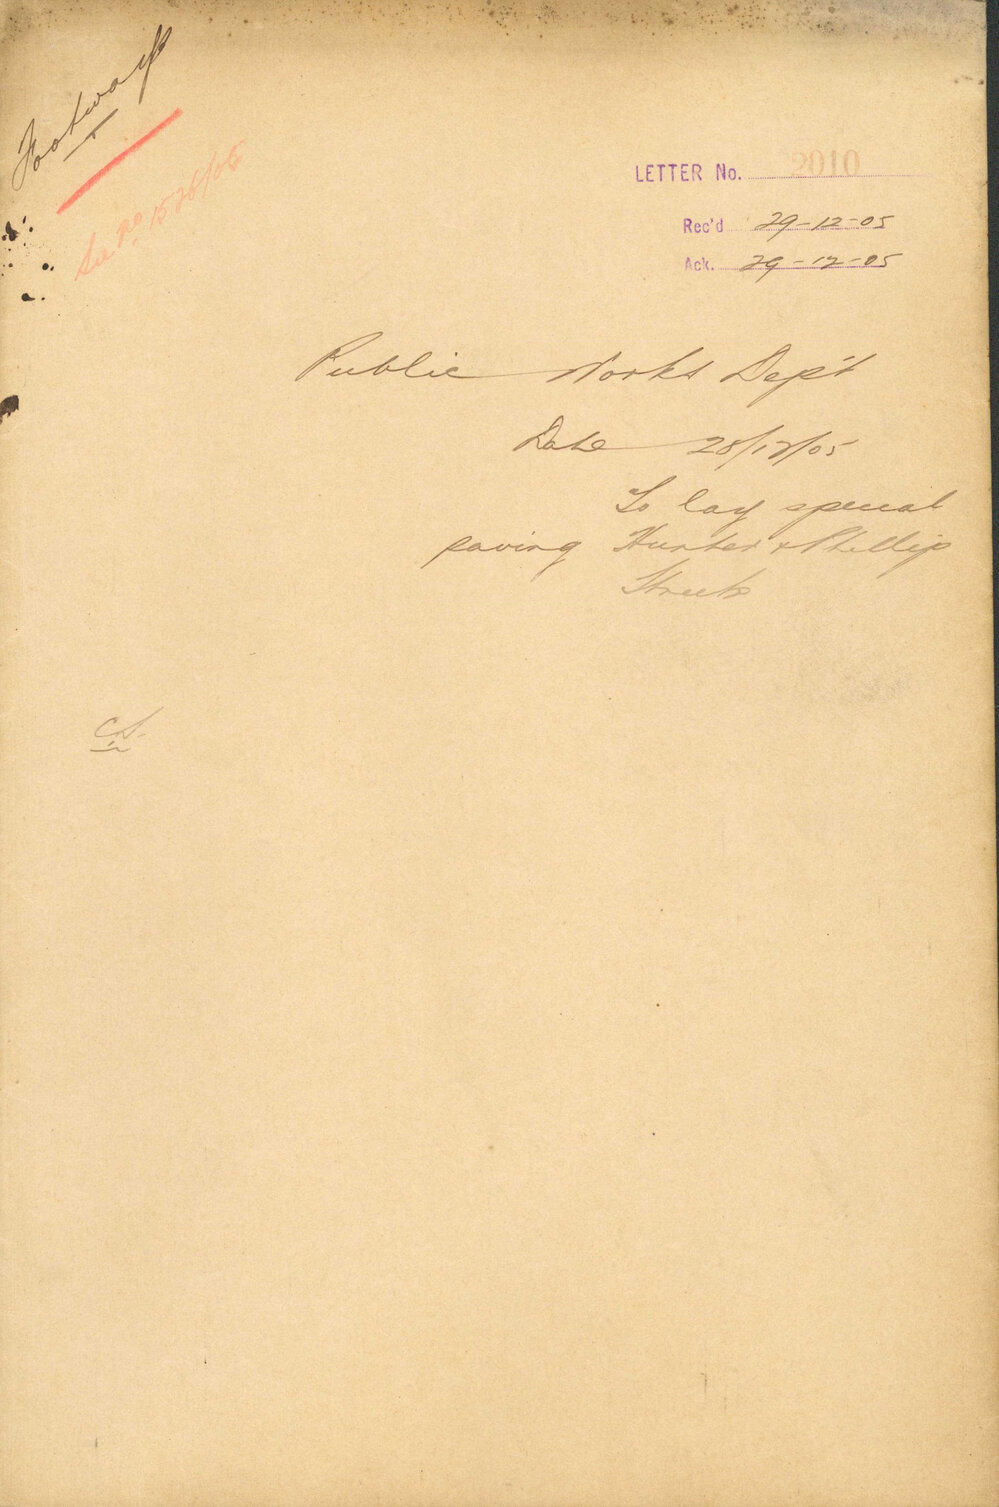 Footways
LETTER No. 2010
Rec'd 29-12-05
Ack. 29-12-05
Public Works Dep't
Date 28/12/05
To lay special
paving Hunter & Phillip
Streets